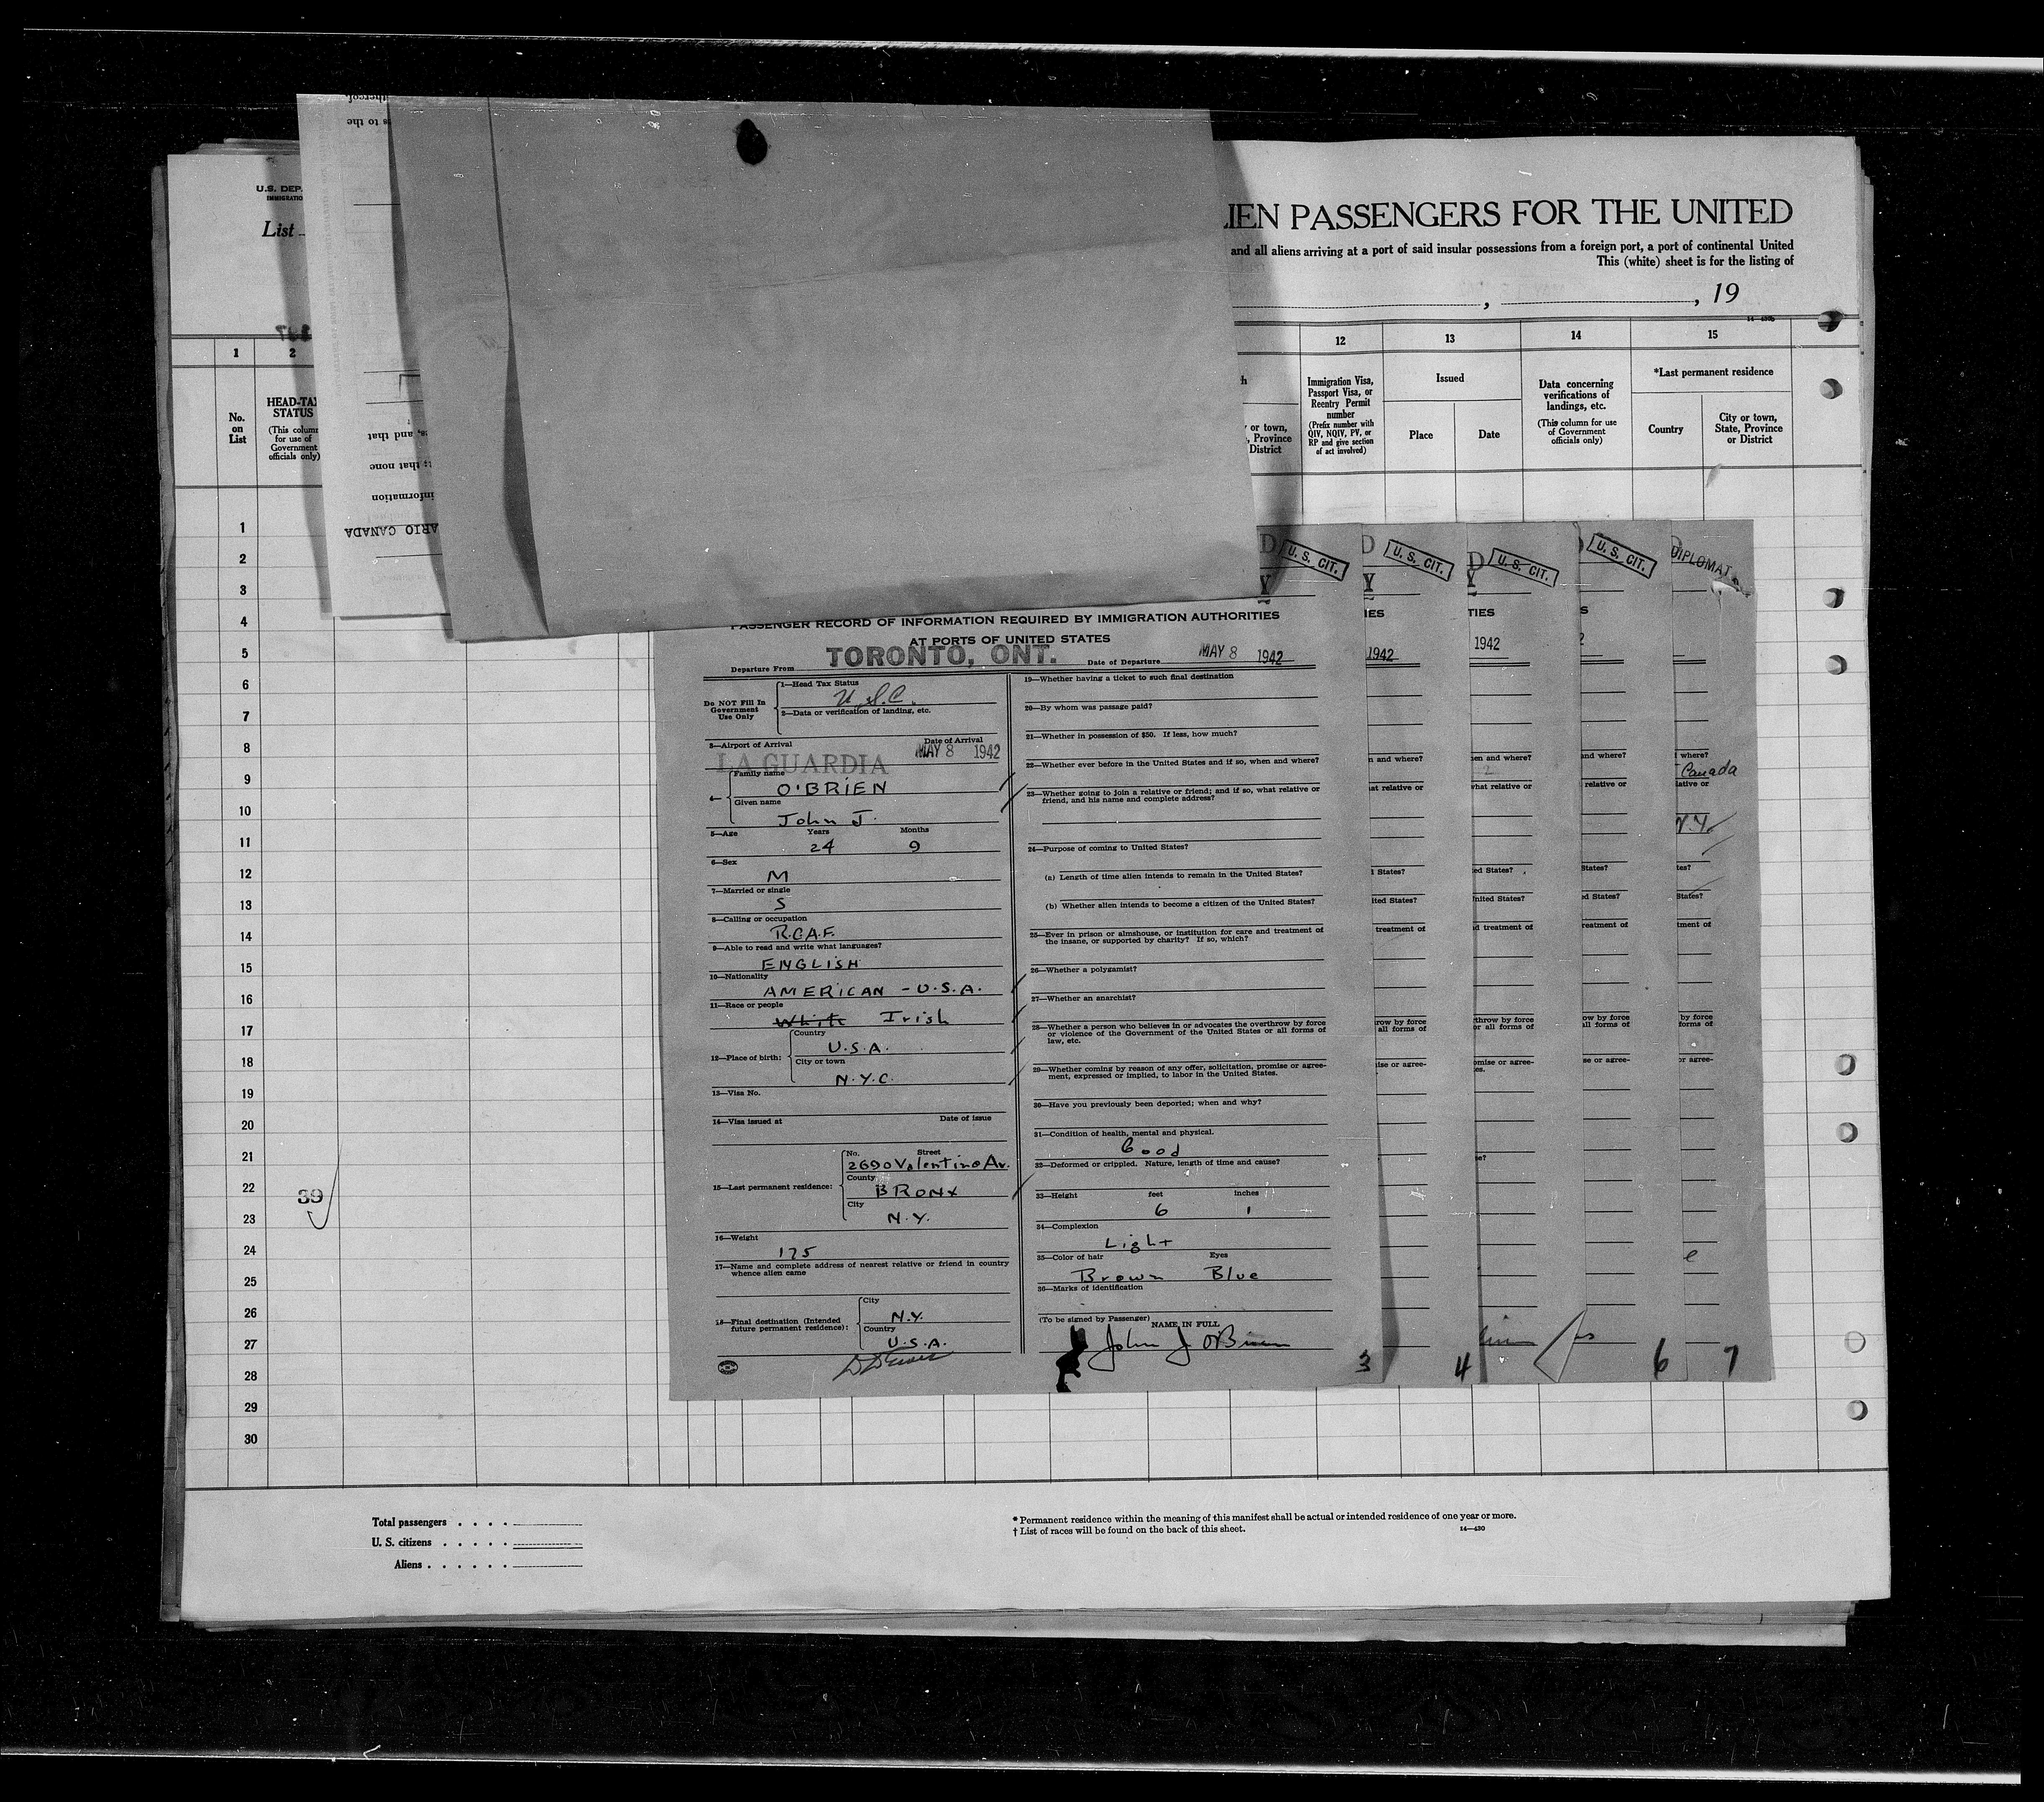 U.S. DEP.
IMMIGRATIO
List
IEN PASSENGERS FOR THE UNITED
and all aliens arriving at a port of said insular possessions from a foreign port, a port of continental United
This (white) sheet is for the listing of
, 19
1 2 12 13 14 15
No. on List
HEAD-TAX STATUS
(This column for use of Government officials only)
or town, Province District
Immigration Visa, Passport Visa, or Reentry Permit number
(Prefix number with QIV, NQIV, PV, or RP and give section of act involved)
Issued
Place
Date
Data concerning verifications of landings, etc.
(This column for use of Government officials only)
*Last permanent residence
Country
City or town, State, Province or District
s to the
s, and that
that none
information
ARIO CANADA
1
2
3
4
5
6
7
8
9
10
11
12
13
14
15
16
17
18
19
20
21
22
23
24
25
26
27
28
29
30
39
U. S. CIT.
U. S. CIT.
U. S. CIT.
U. S. CIT.
DIPLOMAT
PASSENGER RECORD OF INFORMATION REQUIRED BY IMMIGRATION AUTHORITIES
AT PORTS OF UNITED STATES
Departure From TORONTO, ONT. Date of Departure MAY 8 1942
Do NOT Fill In Government Use Only
1—Head Tax Status
U.S.C.
2—Data or verification of landing, etc.
3—Airport of Arrival Date of Arrival
LA GUARDIA MAY 8 1942
4— Family name
O'BRIEN
Given name
John J.
5—Age Years Months
24 9
6—Sex
M
7—Married or single
S
8—Calling or occupation
R.C.A.F.
9—Able to read and write what languages?
ENGLISH
10—Nationality
AMERICAN - U.S.A.
11—Race or people
White Irish
12—Place of birth:
Country
U.S.A.
City or town
N.Y.C.
13—Visa No.
14—Visa issued at Date of issue
15—Last permanent residence:
No. Street
2690 Valentine Av.
County
BRONX
City
N.Y.
16—Weight
175
17—Name and complete address of nearest relative or friend in country
whence alien came
18—Final destination (Intended
future permanent residence):
City
N.Y.
Country
U.S.A.
19—Whether having a ticket to such final destination
20—By whom was passage paid?
21—Whether in possession of $50. If less, how much?
22—Whether ever before in the United States and if so, when and where?
23—Whether going to join a relative or friend; and if so, what relative or
friend, and his name and complete address?
24—Purpose of coming to United States?
(a) Length of time alien intends to remain in the United States?
(b) Whether alien intends to become a citizen of the United States?
25—Ever in prison or almshouse, or institution for care and treatment of
the insane, or supported by charity? If so, which?
26—Whether a polygamist?
27—Whether an anarchist?
28—Whether a person who believes in or advocates the overthrow by force
or violence of the Government of the United States or all forms of
law, etc.
29—Whether coming by reason of any offer, solicitation, promise or agree-
ment, expressed or implied, to labor in the United States.
30—Have you previously been deported; when and why?
31—Condition of health, mental and physical.
Good
32—Deformed or crippled. Nature, length of time and cause?
33—Height feet inches
6 1
34—Complexion
Light
35—Color of hair Eyes
Brown Blue
36—Marks of identification
(To be signed by Passenger) NAME IN FULL
John J O'Brien
3 4 6 7
1942
1942
Canada
N.Y.
Total passengers . . . .
U. S. citizens . . . . .
Aliens . . . . . .
* Permanent residence within the meaning of this manifest shall be actual or intended residence of one year or more.
† List of races will be found on the back of this sheet.
14—430